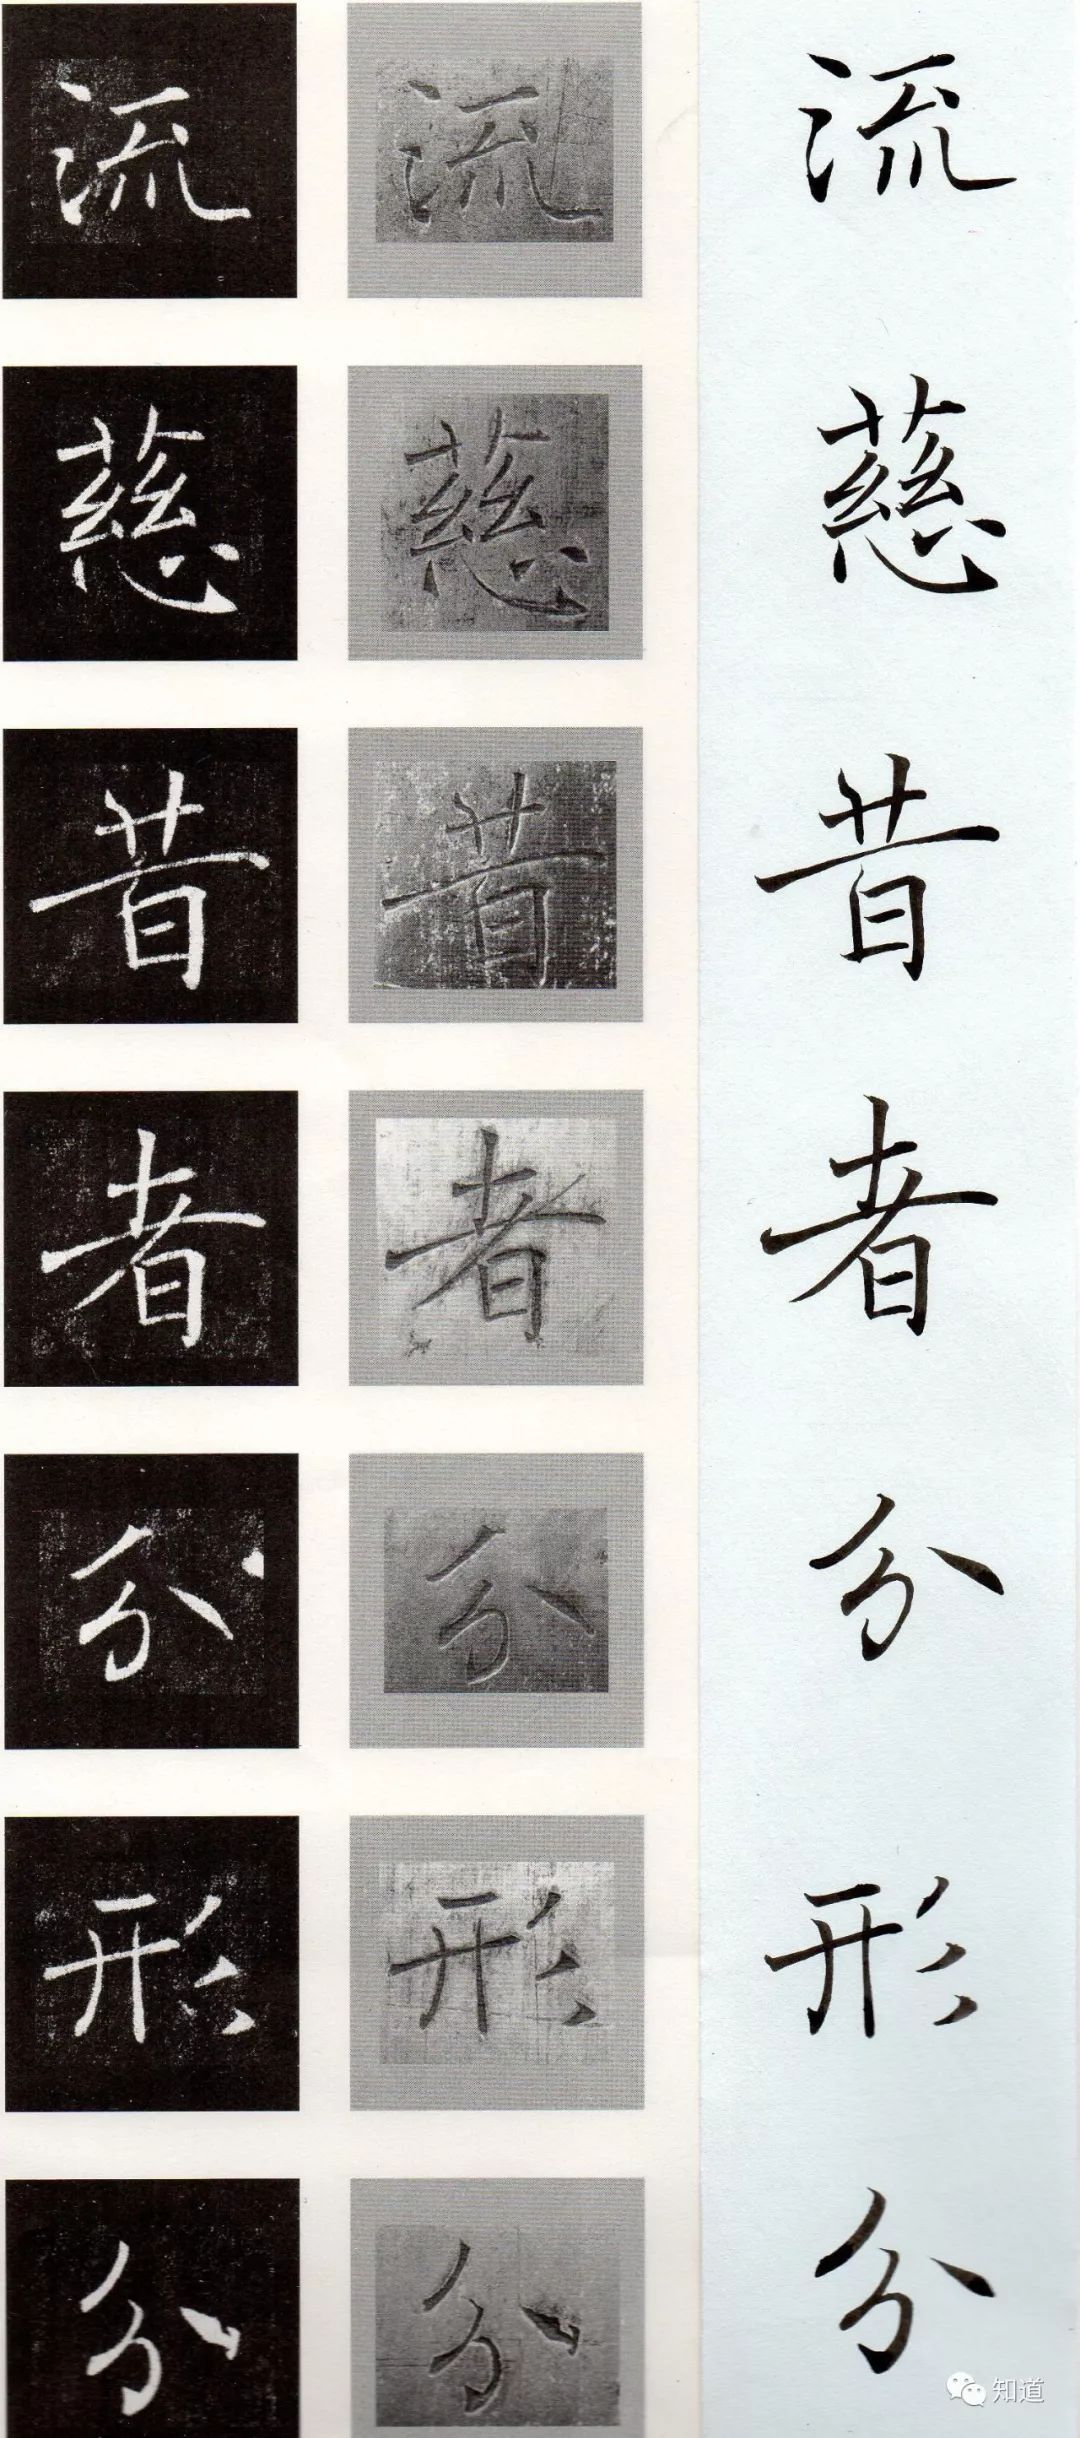 流 流 流
慈 慈 慈
昔 昔 昔
者 者 者
分 分 分
形 形 形
分 分 分
知道